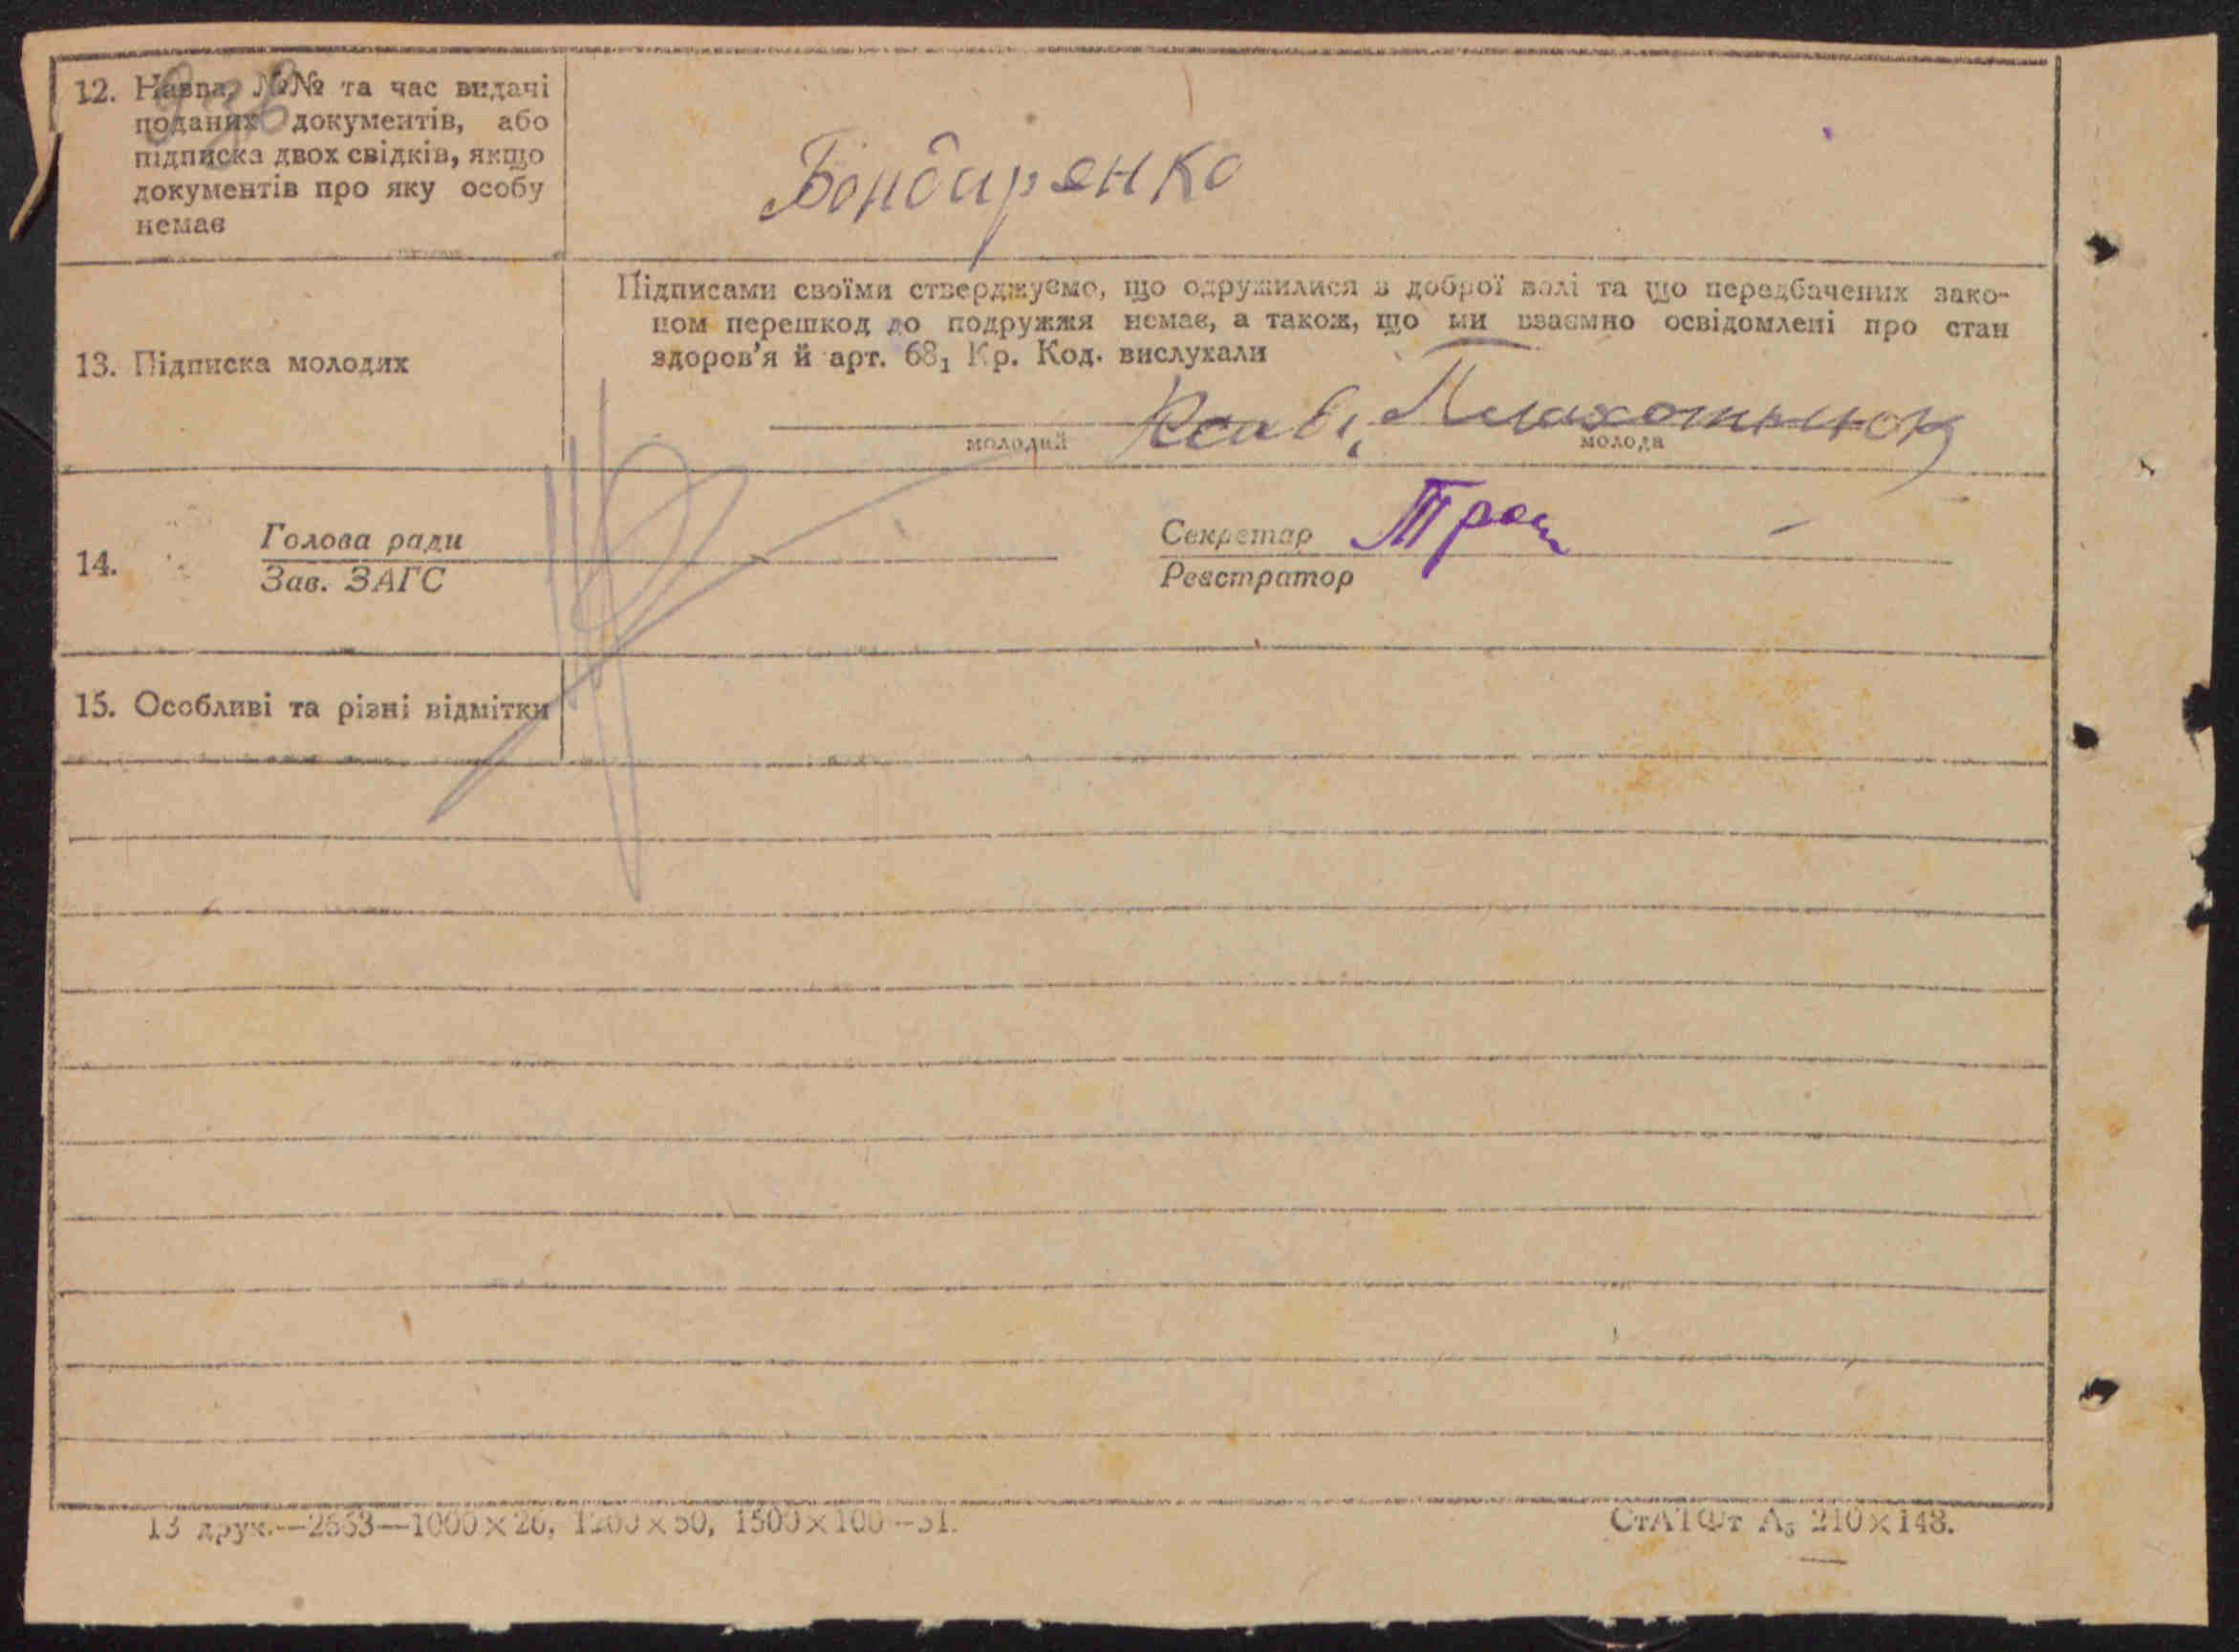 12. Назва, №№ та час видачі
поданих документів, або
підписка двох свідків, якщо
документів про яку особу
немає
Бондаренко
13. Підписка молодих
Підписами своїми стверджуємо, що одружилися з доброї волі та що передбачених зако-
ном перешкод до подружжя немає, а також, що ми взаємно освідомлені про стан
здоров'я й арт. 68₁ Кр. Код. вислухали
Плахотнюк
молодий
молода
14.
Голова ради
Зав. ЗАГС
Секретар
Реєстратор
15. Особливі та різні відмітки
13 друк.—2533—1000×20, 1200×50, 1500×100—31.
СтАТФт А₅ 210×148.